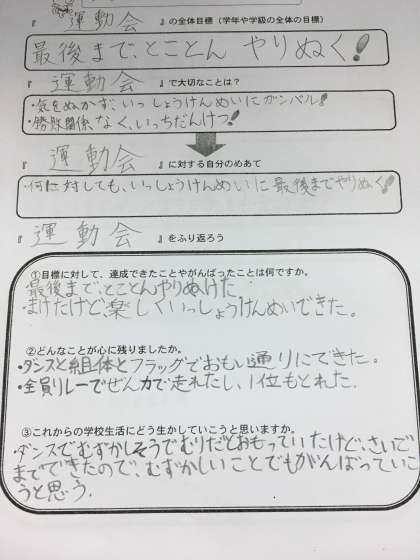 『 運動会 』の全体目標（学年や学級の全体の目標）
最後まで、とことん やりぬく!
『 運動会 』で大切なことは？
・気をぬかず、いっしょうけんめいにガンバル!
・勝敗関係なく、いっちだんけつ!
『 運動会 』に対する自分のめあて
・何に対しても、いっしょうけんめいに最後までやりぬく!
『 運動会 』をふり返ろう
①目標に対して、達成できたことやがんばったことは何ですか。
最後まで、とことんやりぬけた。
まけたけど楽しくいっしょうけんめいできた。
②どんなことが心に残りましたか。
・ダンスと組体とフラッグでおもい通りにできた。
・全員リレーでぜん力で走れたし、1位もとれた.
③これからの学校生活にどう生かしていこうと思いますか。
・ダンスでむずかしそうでむりだとおもっていたけど、さいご
まででできたので、むずかしいことでもがんばっていこ
うと思う.